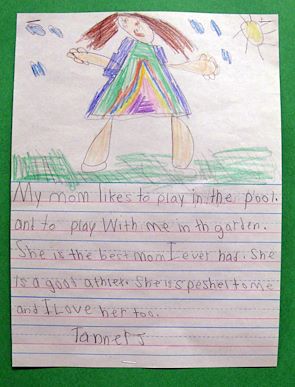 My mom likes to play in the pool.
and to play with me in th garden.
She is the best mom I ever had. She
is a goot athlet. She is speshel to me
and I Love her too.
Tanner J